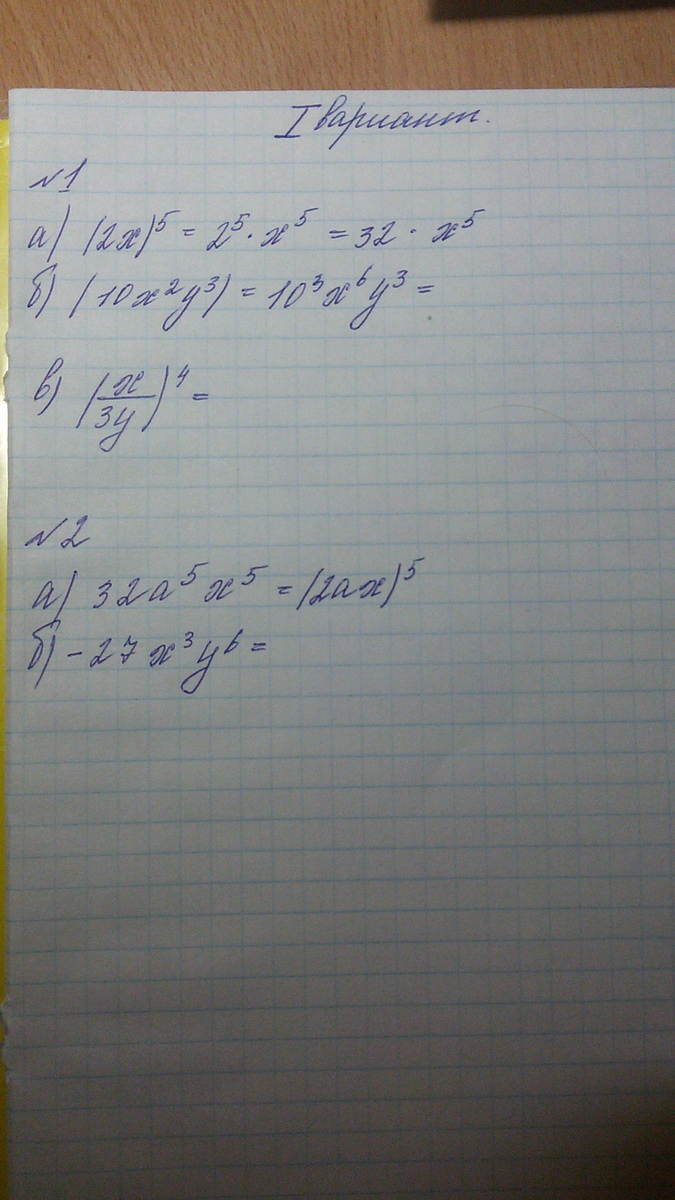 I вариант.
№1
а) (2x)⁵ = 2⁵ · x⁵ = 32 · x⁵
б) (10x²y³) = 10³x⁶y³ =
в) (x/3y)⁴ =
№2
а) 32a⁵x⁵ = (2ax)⁵
б) -27x³y⁶ =